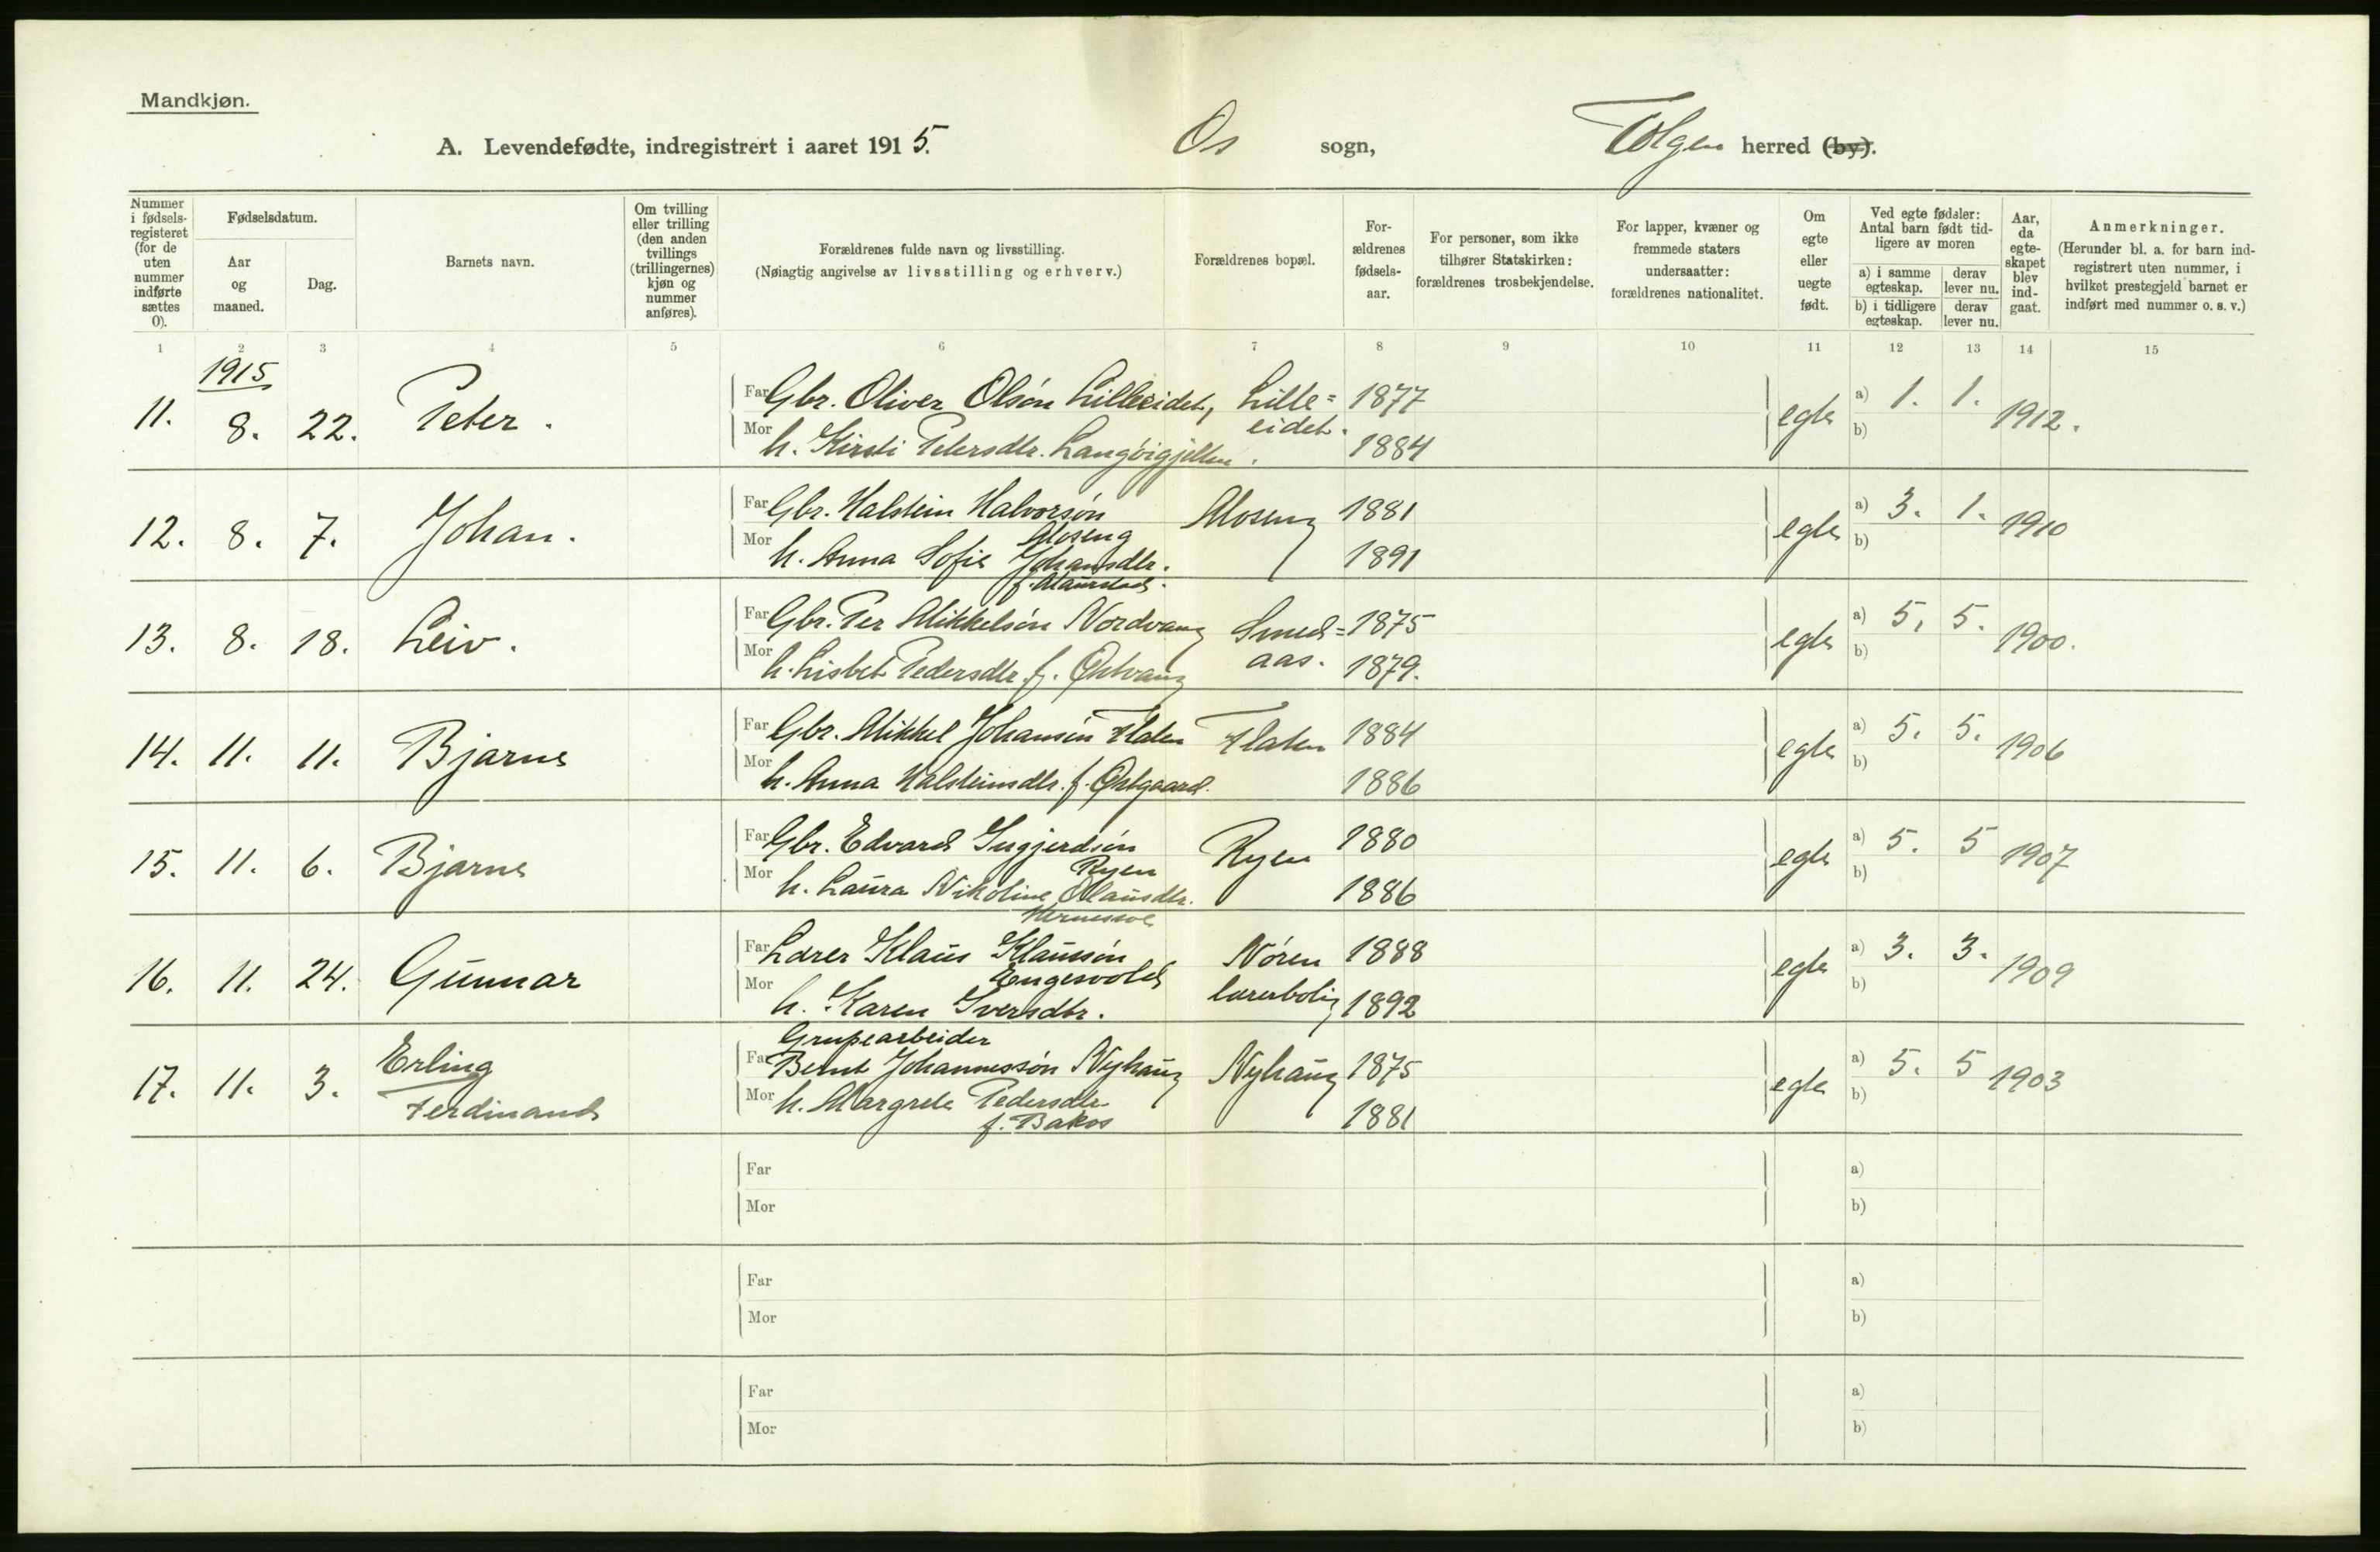 Mandkjøn.
A. Levendefødte, indregistrert i aaret 1915. Os sogn, Tolgen herred (by).
Nummer i fødsels-registeret (for de uten nummer indførte sættes 0).
Fødselsdatum.
Aar og maaned.
Dag.
Barnets navn.
Om tvilling eller trilling (den anden tvillings (trillingernes) kjøn og nummer anføres).
Forældrenes fulde navn og livsstilling.
(Nøiagtig angivelse av livsstilling og erhverv.)
Forældrenes bopæl.
For-ældrenes fødsels-aar.
For personer, som ikke tilhører Statskirken: forældrenes trosbekjendelse.
For lapper, kvæner og fremmede staters undersaatter: forældrenes nationalitet.
Om egte eller uegte født.
Ved egte fødsler: Antal barn født tid-ligere av moren
a) i samme egteskap.
derav lever nu.
b) i tidligere egteskap.
derav lever nu.
Aar, da egte-skapet blev ind-gaat.
Anmerkninger.
(Herunder bl. a. for barn ind-registrert uten nummer, i hvilket prestegjeld barnet er indført med nummer o. s. v.)
1 2 3 4 5 6 7 8 9 10 11 12 13 14 15
1915
11. 8. 22. Peter. Far Gbr. Oliver Olsøn Lilleeidet, Lille= 1877 egte a) 1. 1. 1912.
eidet.
Mor h. Kirsti Petersdtr. Langøigjelten. 1884 b)
12. 8. 7. Johan. Far Gbr. Halstein Halvorsøn Moseng 1881 egte a) 3. 1. 1910
Moseng
Mor h. Anna Sofie Johansdtr. 1891 b)
13. 8. 18. Leiv. Far Gbr. Per Mikkelsøn Nordvang Smed= 1875 egte a) 5. 5. 1900.
aas.
Mor h. Lisbet Pedersdtr. f. Østvang 1879. b)
14. 11. 11. Bjarne Far Gbr. Mikkel Johansøn Flaten Flaten 1884 egte a) 5. 5. 1906
Mor h. Anna Halsteinsdtr. f. Østgaard. 1886 b)
15. 11. 6. Bjarne Far Gbr. Edvard Ingjerdsøn Ryen 1880 egte a) 5. 5 1907
Ryen
Mor h. Laura Nikoline Olausdtr. 1886 b)
16. 11. 24. Gunnar Far Lærer Klaus Klaussøn Nøren 1888 egte a) 3. 3. 1909
Engesvold
Mor h. Karen Iversdtr. lærerbolig 1892 b)
Grubearbeider
17. 11. 3. Erling Far Bernt Johannessøn Nyhaug Nyhaug 1875 egte a) 5. 5 1903
Ferdinand Mor h. Margrete Pedersdtr. 1881 b)
f. Bakos
Far a)
Mor b)
Far a)
Mor b)
Far a)
Mor b)